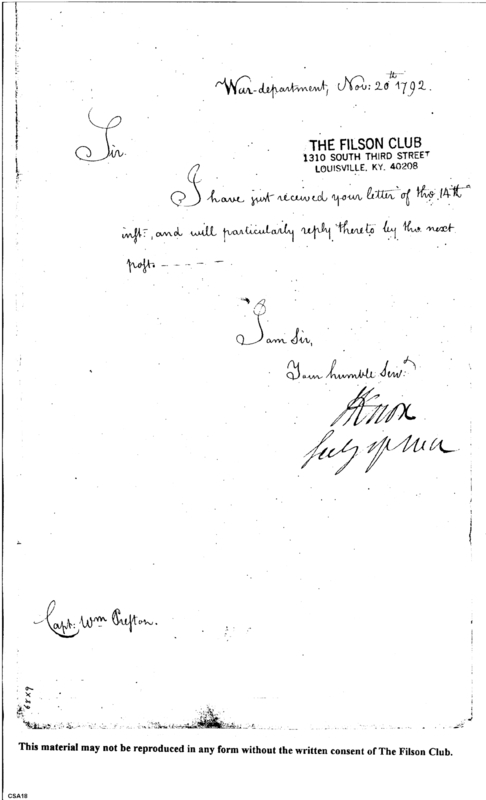 War-department, Nov: 20th 1792.
Sir.
THE FILSON CLUB
1310 SOUTH THIRD STREET
LOUISVILLE, KY. 40208
I have just received your letter of the 14th
inst:, and will particularly reply thereto by the next
post. - - - - -
I am Sir,
Your humble Servt
HKnox
Secy of War
Capt: Wm Preston.
6XX9
This material may not be reproduced in any form without the written consent of The Filson Club.
CSA18